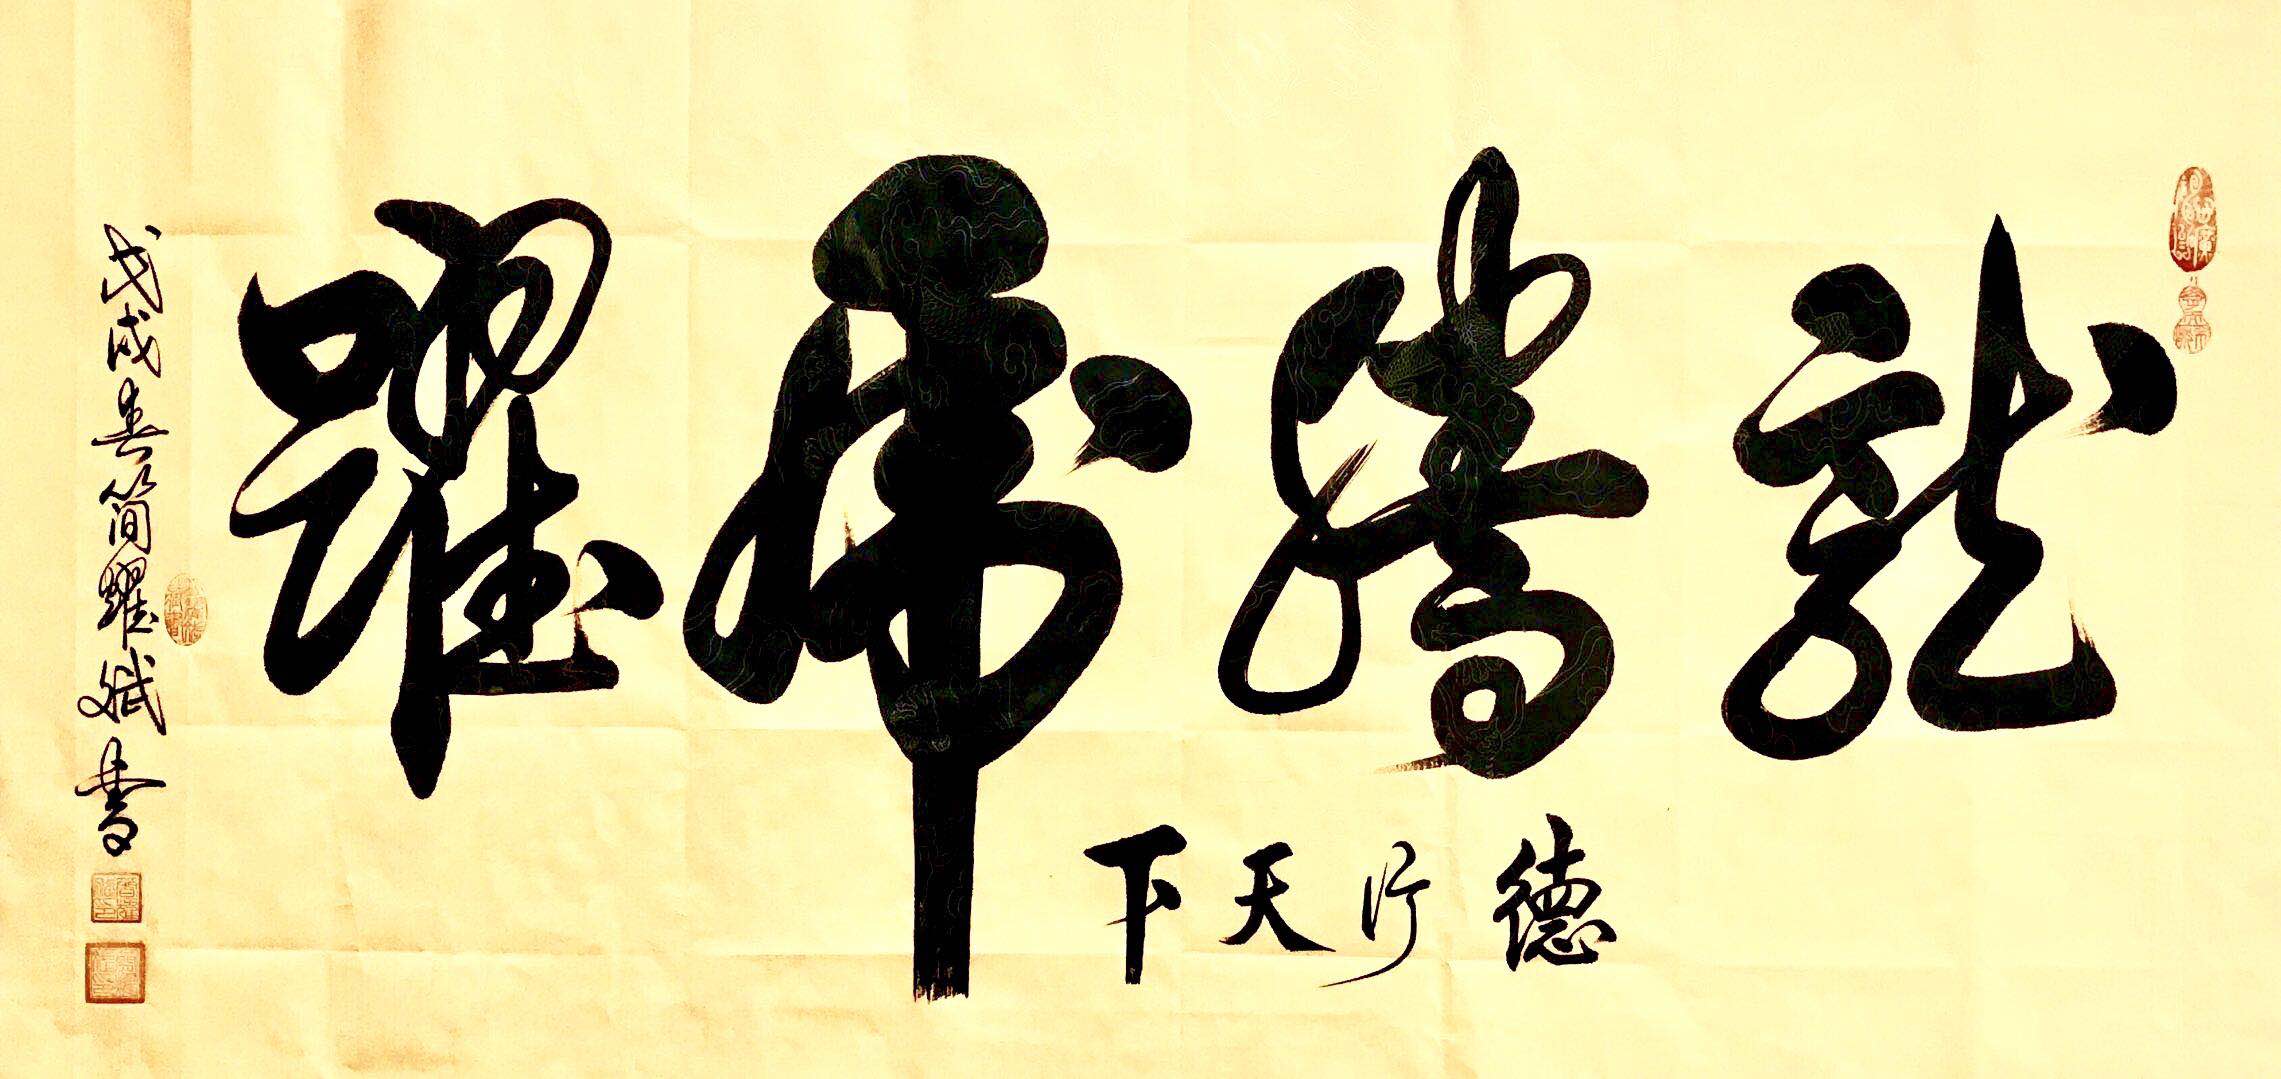 龍騰虎躍
德行天下
戊戌春簡躍斌書